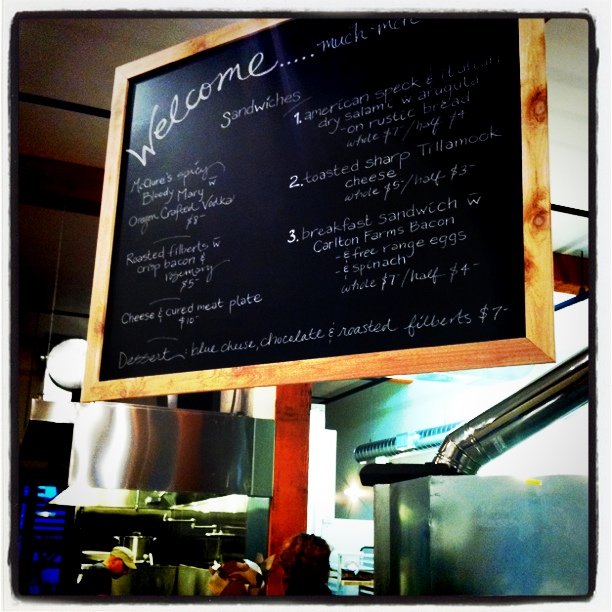 Welcome.....much more
Sandwiches
McClure's spicy
Bloody Mary w
Oregon Crafted Vodka
$8-
Roasted filberts w
crisp bacon &
rosemary
$5-
Cheese & cured meat plate
$10-
1. american speck & italian
dry salami w arugula
- on rustic bread
whole $7 / half $4
2. toasted sharp Tillamook
cheese
whole $5- / half $3-
3. breakfast sandwich w
Carlton Farms Bacon
- & free range eggs
- & spinach
whole $7 / half $4-
Dessert: blue cheese, chocolate & roasted filberts $7-